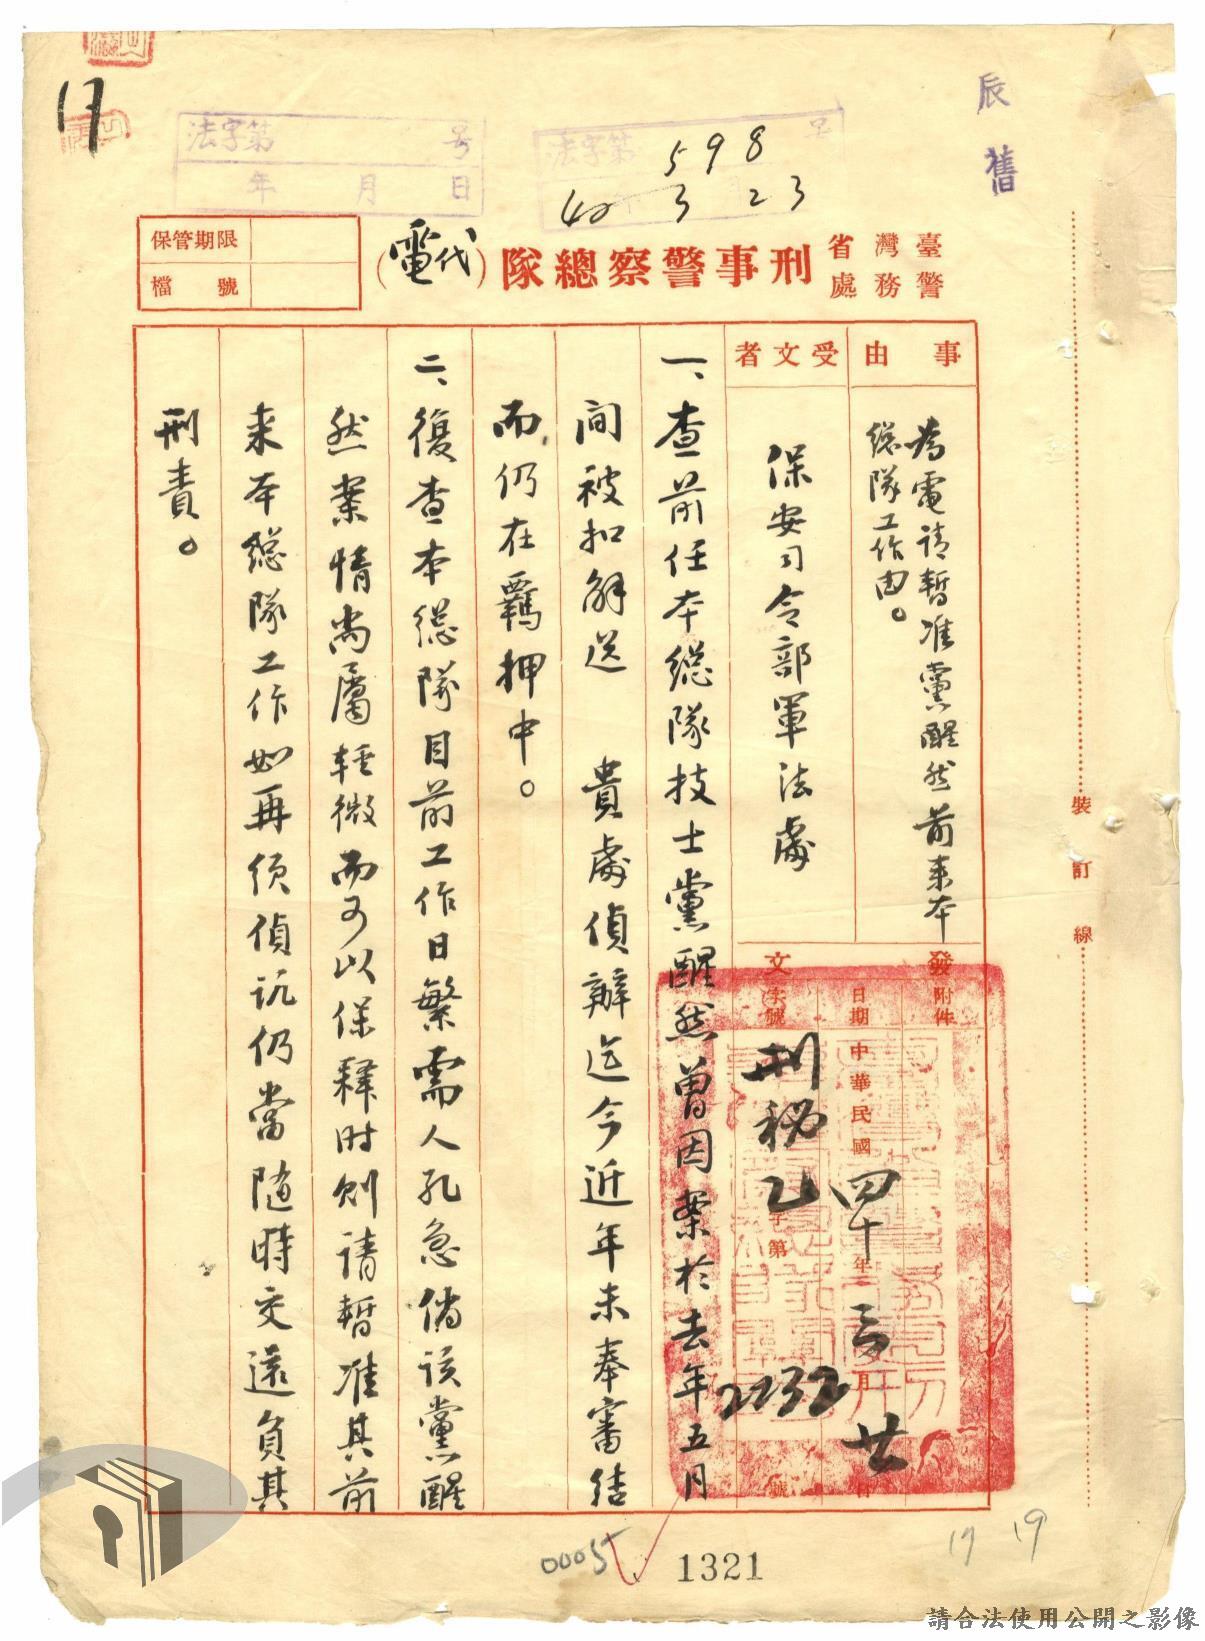 辰
舊
17
法字第 号
年 月 日
法字第 号
598
40 3 23
保管期限
檔號
臺灣省警務處刑事警察總隊(代電)
事由
為電請暫准黨醒然前来本
總隊工作由。
受文者
保安司令部軍法處
發文
附件
日期
中華民國四十年三月廿日
字號
刑秘乙字第2232號
一、查前任本總隊技士黨醒然曾因案於去年五月
間被扣解送 貴處偵辦迄今近年未奉審結
而仍在羈押中。
二、復查本總隊目前工作日繁需人孔急倘該黨醒
然案情尚屬輕微而可以保釋时則請暫准其前
来本總隊工作如再須偵訊仍當随時交還負其
刑責。
裝訂線
0005
1321
17 19
請合法使用公開之影像